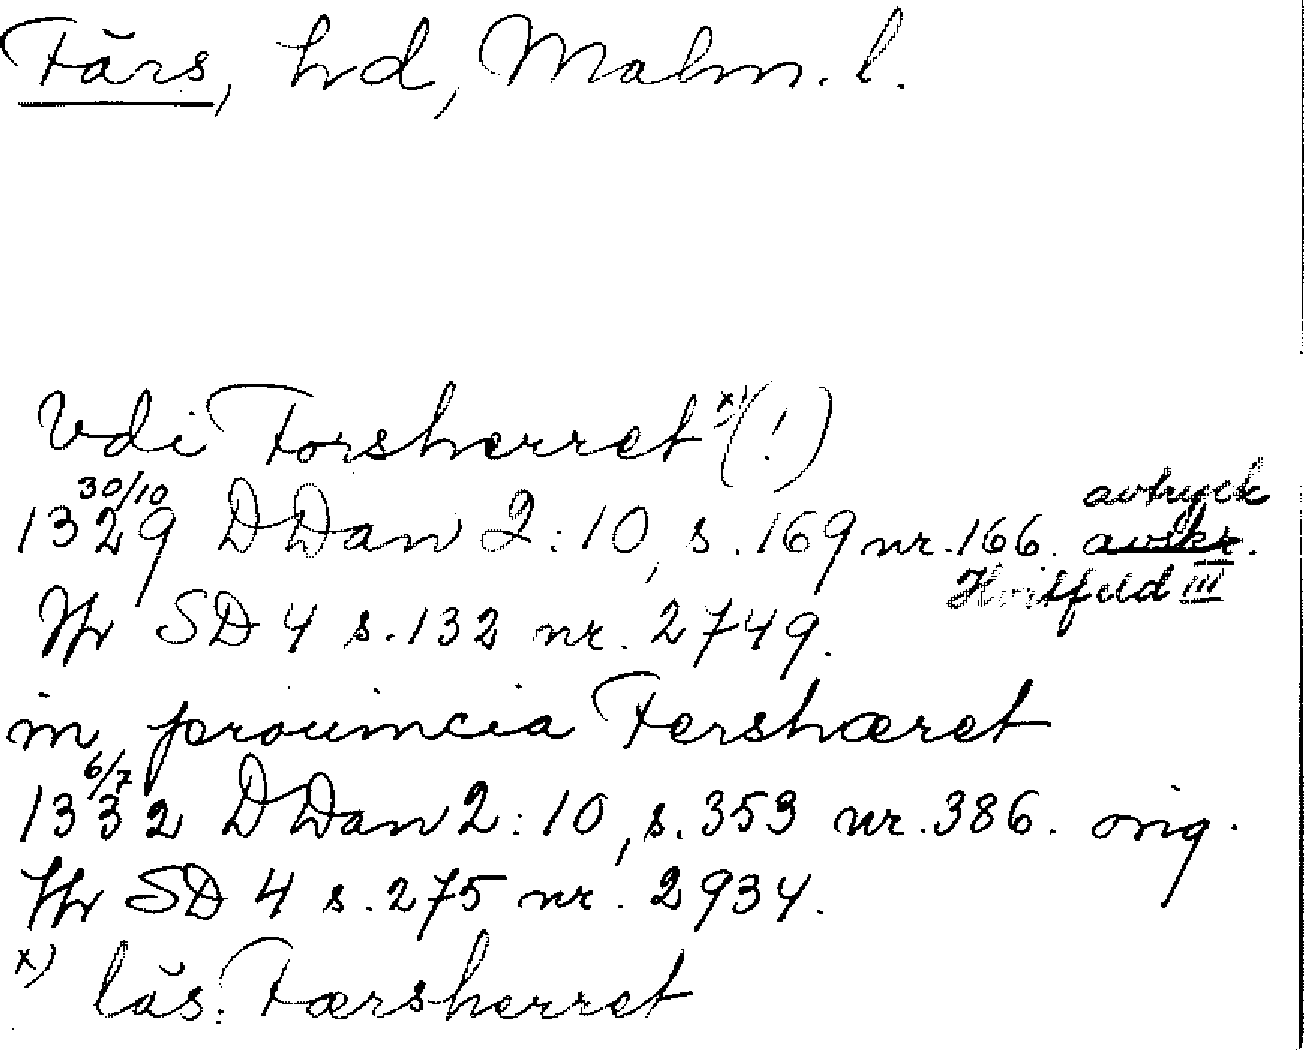 Färs, hd, Malm. l.
Vdi Forsherret x) (!)
30/10
1329 DDan 2:10, s. 169 nr. 166. avtryck
avskr.
Hvitfeld III
Jfr SD 4 s. 132 nr. 2749.
in prouincia Fershæret
6/7
1332 DDan 2:10, s. 353 nr. 386. orig.
Jfr SD 4 s. 275 nr. 2934.
x) läs: Færsherret